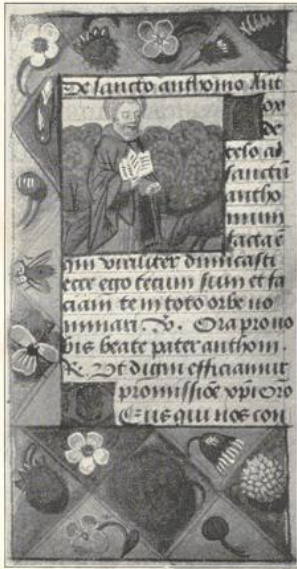 De sancto anthonio Ant
ox
de
celo ad
sanctū
antho
nium
facta ē
qui viriliter dimicasti
ecce ego tecum sum et fa
ciam te in toto orbe no
minari. V. Ora pro no
bis beate pater anthoni.
R. Ut digni efficiamur
promissiōe xpi Oro
Eus qui nos con